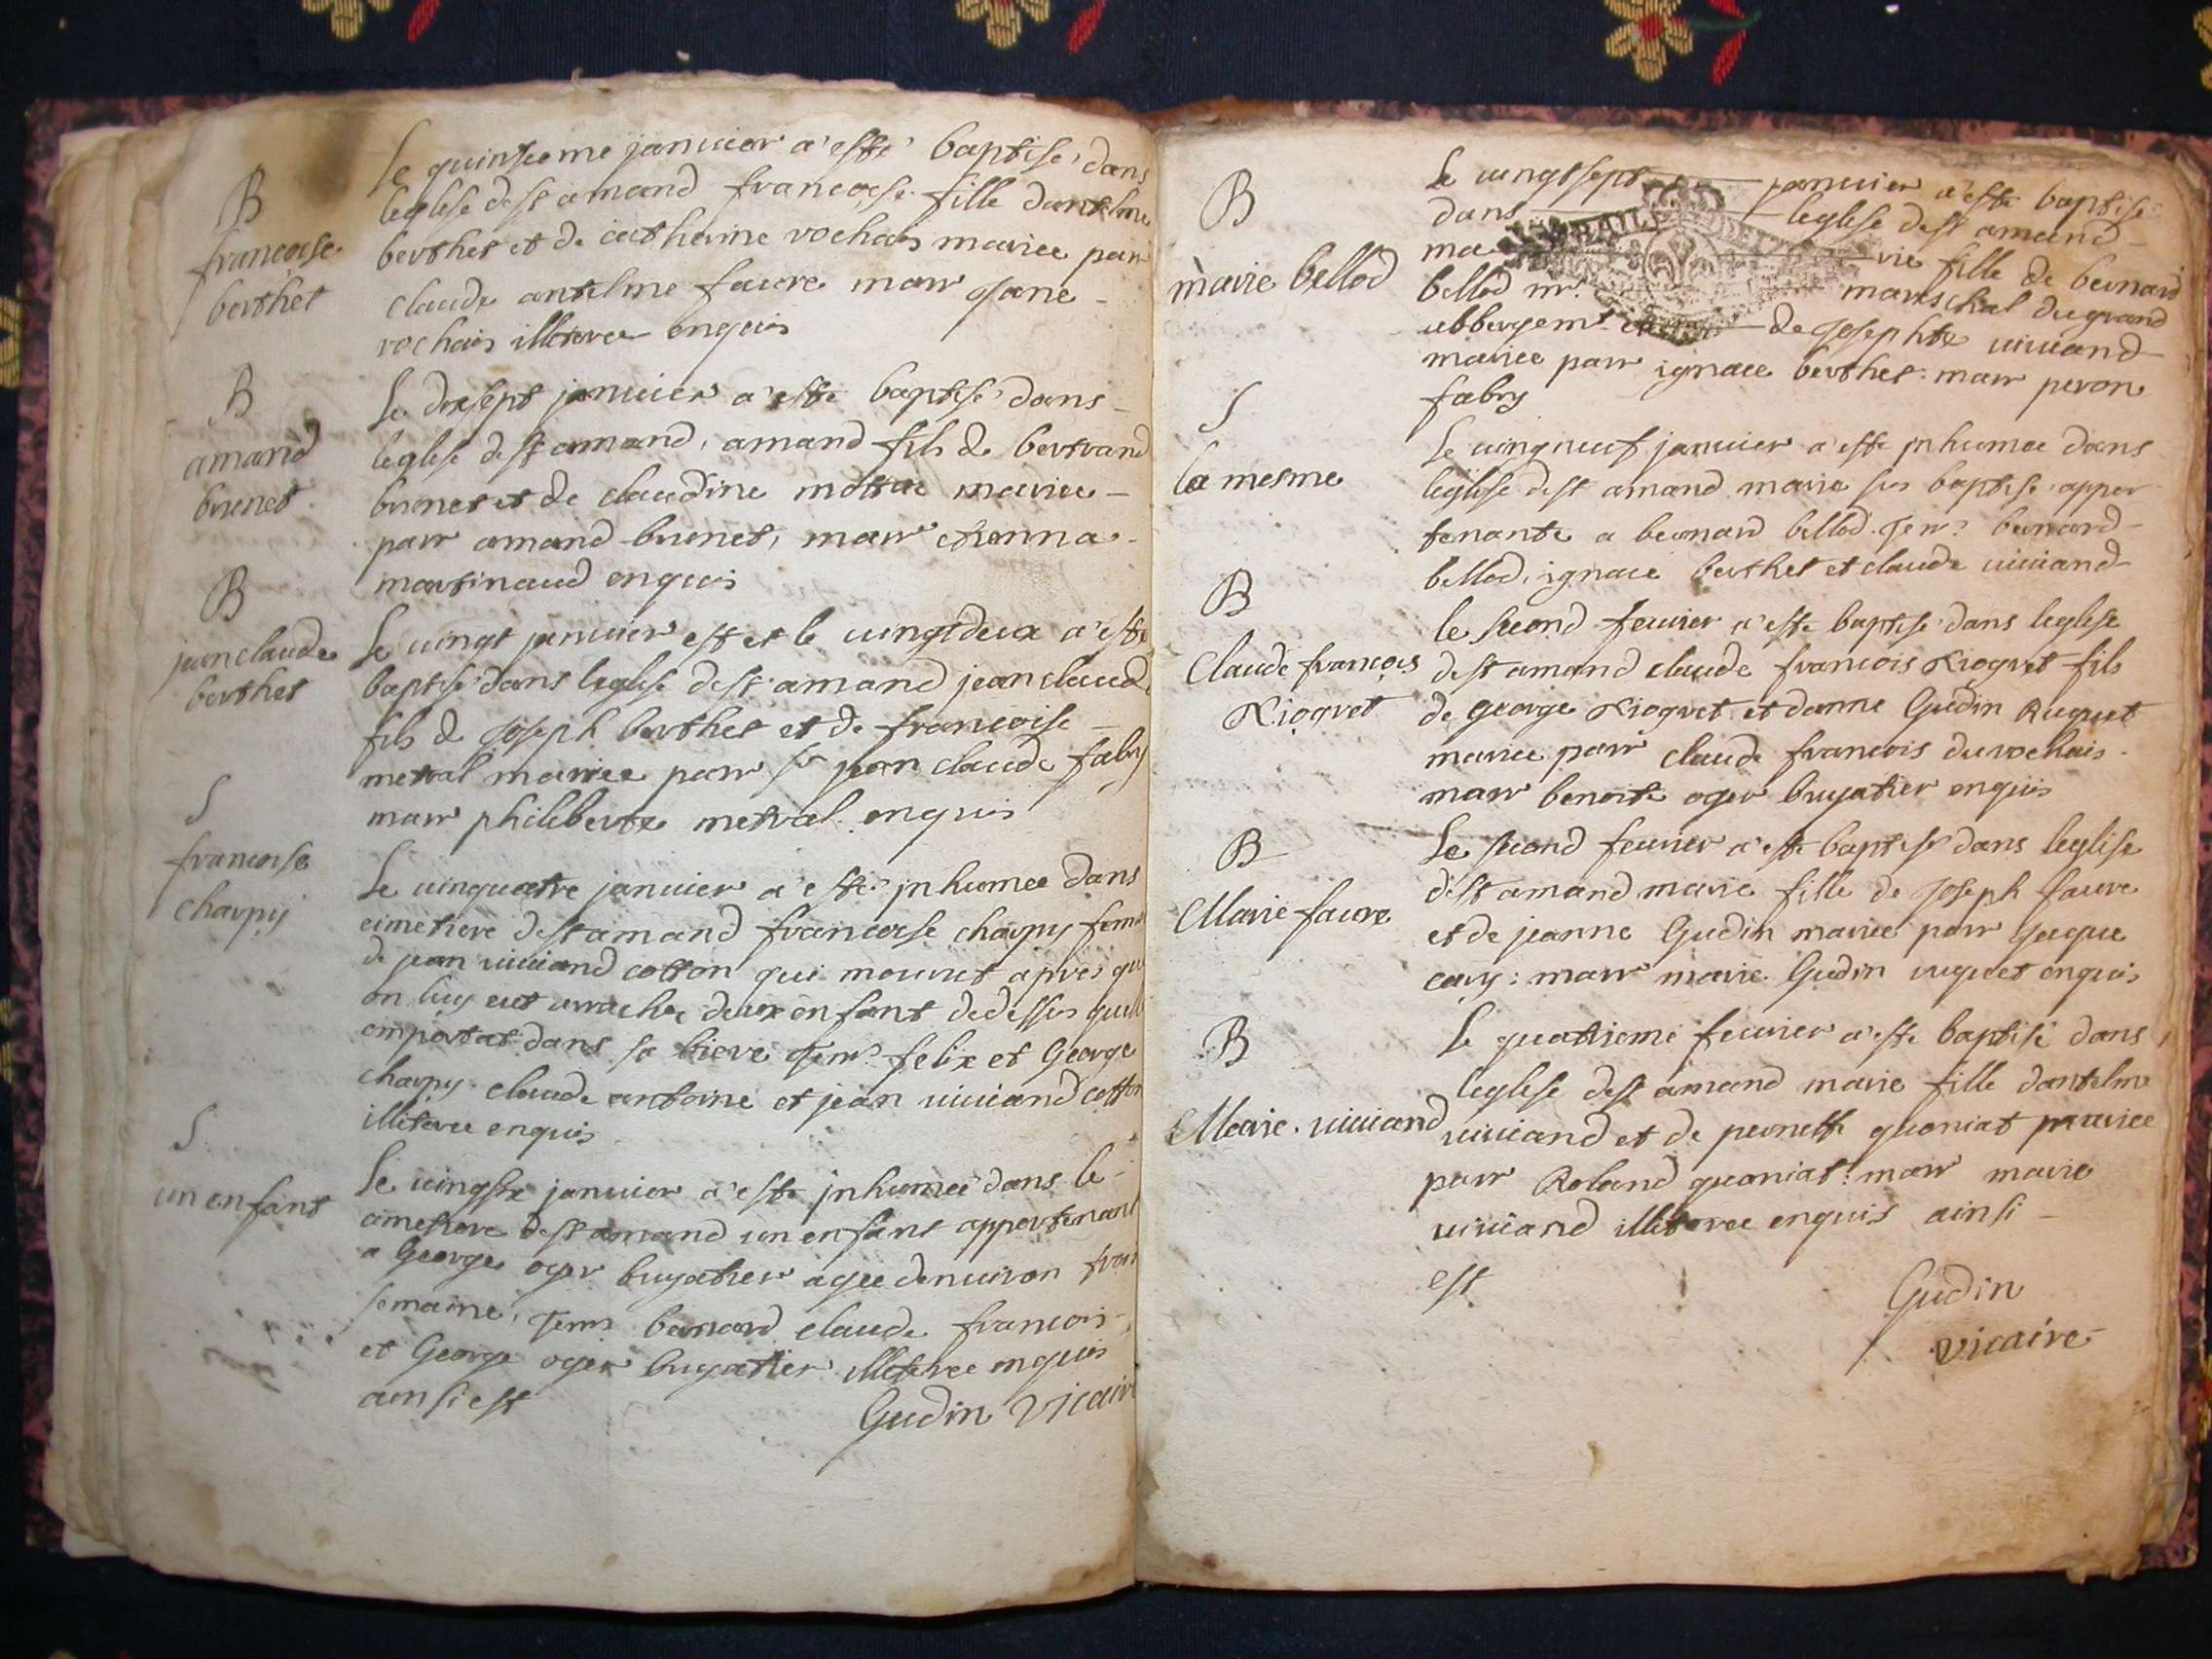 B
francoise
berthet
Le quinsieme januier a esté baptisé dans
leglise de st amand francoise fille dantelme
berthet et de catherine rochais mariee parr
claude antelme faure marr jane
rochais illiteree enquis
B
amand
brunet
Le dixsept januier a esté baptisé dans
leglise de st amand, amand fils de bertrand
brunet et de claudine mariee
parr amand brunet, marr
martinaud enquis
B
jean claude
berthet
Le uingt januier est et le uingt deux a esté
baptisé dans leglise de st amand jean claude
fils de Joseph berthet et de francoise
metral mariee parr sr jean claude fabry
marr philiberte metral enquis
S
francoise
charpy
Le uinquatre januier a esté jnhumee dans
cimetiere de st amand francoise charpy feme
de jean uiuiand cotton qui mourut apres qu
on luy eut arraches deux enfant dedessus quell
emportat dans sa biere Tem. felix et George
charpy claude antoine et jean uiuiand cotton
illiteree enquis
S
un enfant
Le uingsix januier a esté jnhumeé dans le
cimetiere de st amand un enfant appertenant
a George oger bugatier agee denuiron trois
semaine, Tem. bernard claude francois
et George oger bugatier illiteree enquis
ainsi est Gudin Vicaire
B
marie bellod
Le uingt sept januier a esté baptisé
dans leglise de st amand
ma rie fille de bernard
bellod mr. mareschal du grand
abbergemt de Josephte uiuiand
mariee parr ignace berthet marr peron
fabry
S
la mesme
Le uingneuf januier a esté jnhumee dans
leglise de st amand marie sus baptisé apper
tenante a bernard bellod Tem. bernard
bellod, ignace berthet et claude uiuiand
B
Claude francois
Riogvet
le second feurier a esté baptisé dans leglise
de st amand claude francois Riogvet fils
de george Riogvet et danne Gudin Ruquet
mariee parr claude francois durochais
marr benoite oger bugatier enquis
B
Marie faure
Le second feurier a esté baptisé dans leglise
de st amand marie fille de Joseph faure
et de jeanne Gudin mariee parr jacque
cary : marr marie Gudin ruquet enquis
B
Marie uiuiand
Le quatrieme feurier a esté baptisé dans
leglise de st amand marie fille dantelme
uiuiand et de pernette guoniat mariee
parr Roland guoniat : marr marie
uiuiand illiteree enquis ainsi
est
Gudin
vicaire